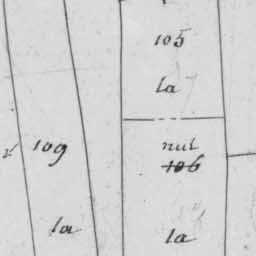 105
la
109
nul
106
la
la